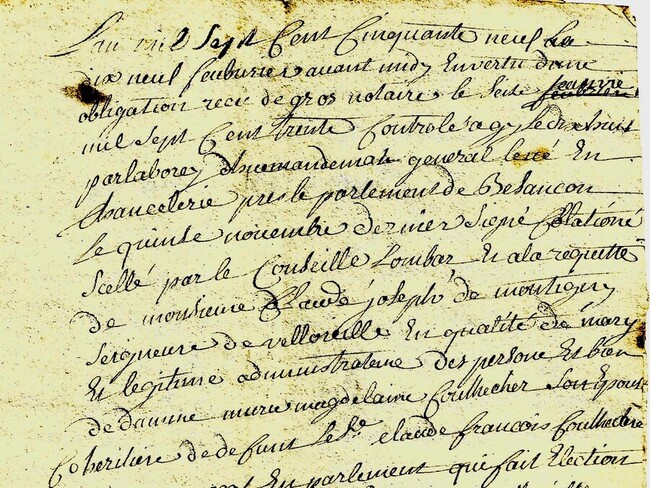 Lan mil Sept Cent Cinquante neuf le
dix neuf feubvrier avant midy En vertu dune
obligation recu de gros notaire le Seise janvie
mil Sept Cent trente Controle a gy le dix huit
par laborey dhu mandemant general levé En
Chancelerie pres le parlement de Besancon
Le quinse novembre dernier Signé Collationé
Scellé par le Conseille Lombar En a la requette
de monsieur Claude joseph de montigny
Seigneure de velloreille En qualité de mary
Et legitime administrateure des persone Et bien
de damme marie magdelaine Coulhecher Son Epous
Coheritiere de defunt le Sr claude francois Coulhecher
En parlement qui fait Election